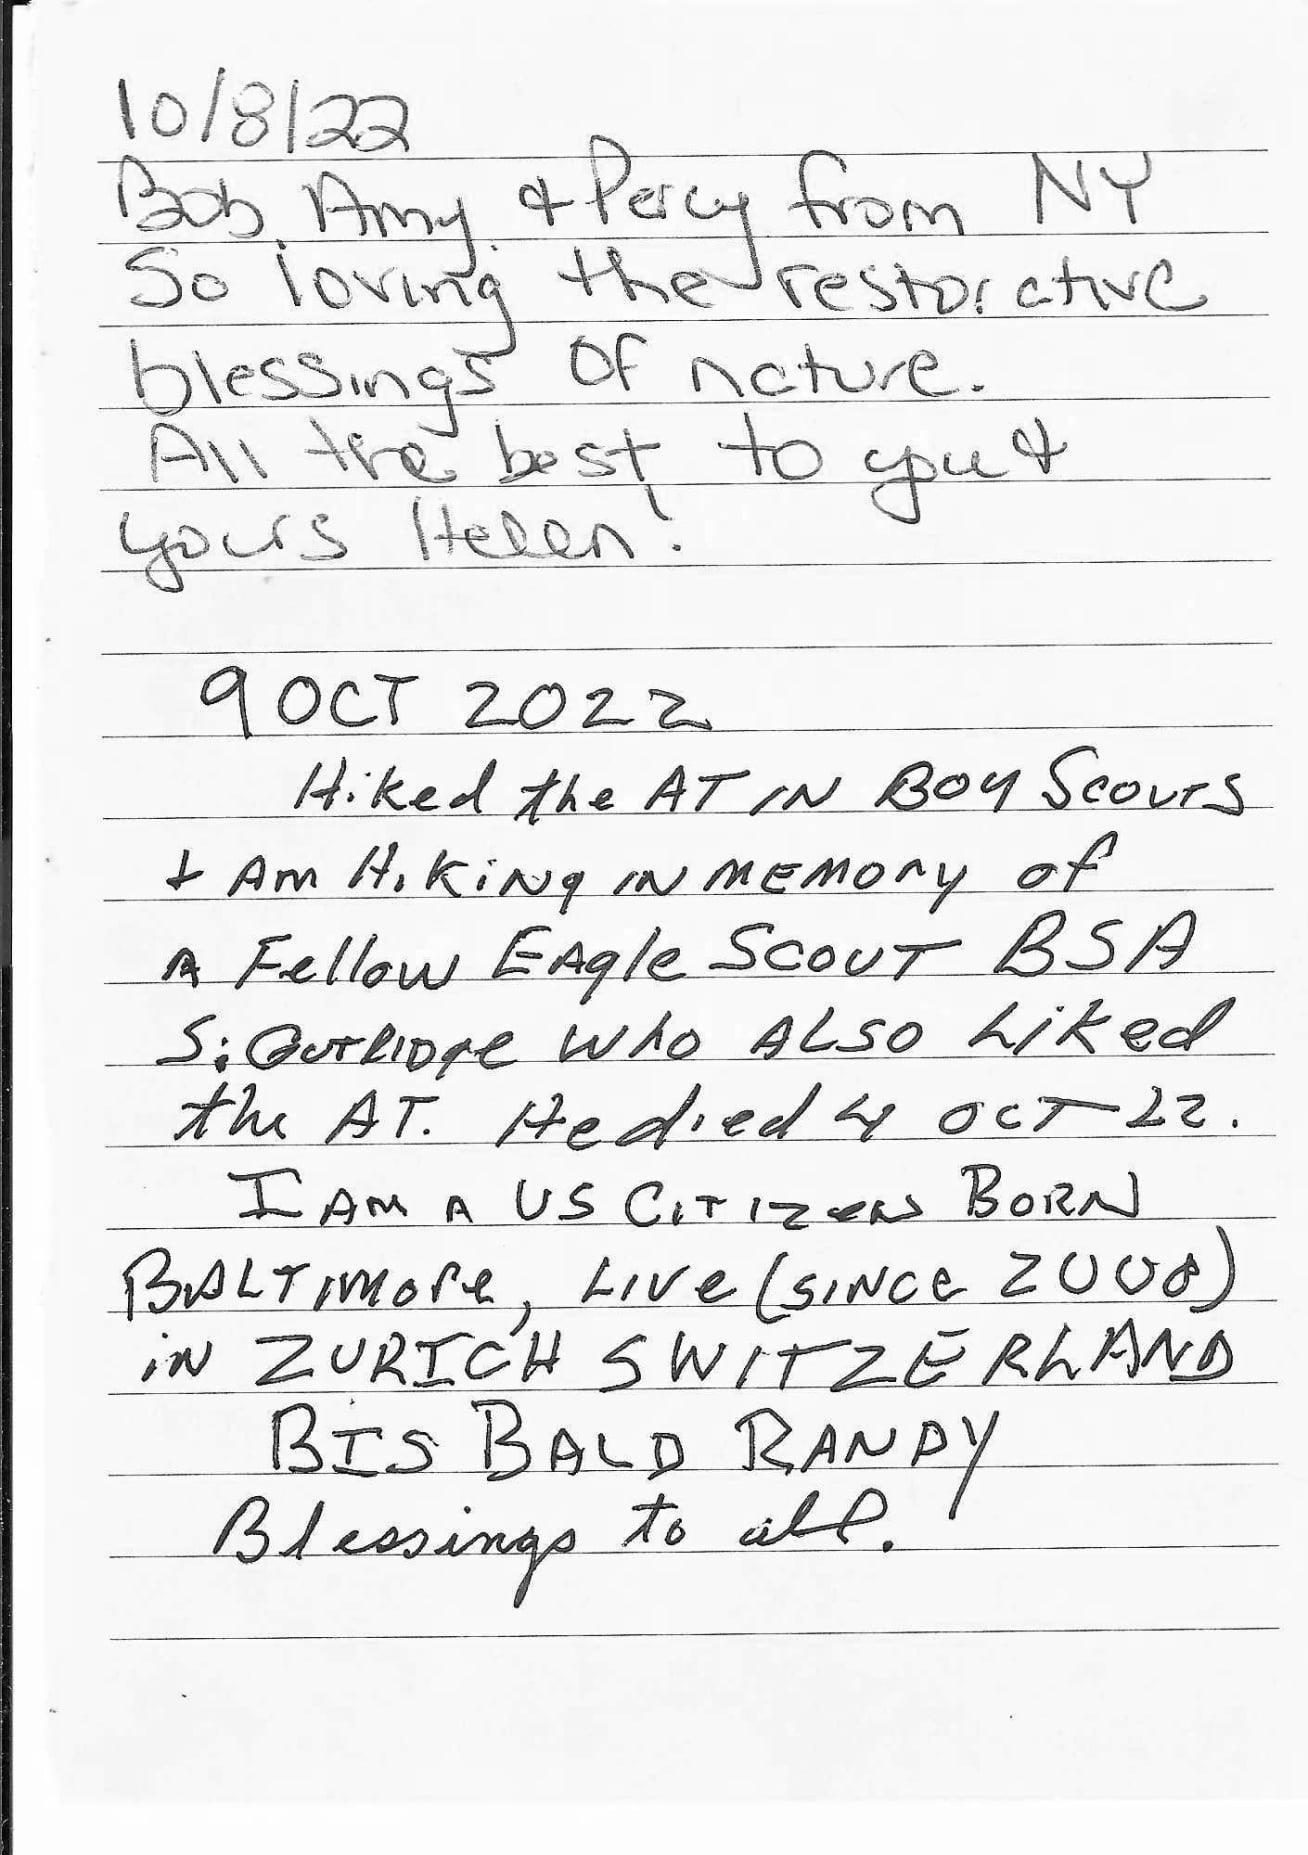 10/8/22
Bob, Amy, & Percy from NY
So loving the restorative
blessings of nature.
All the best to you &
yours Helen!
9 OCT 2022
Hiked the AT IN BOY SCOUTS
+ AM HiKiNg IN MEMORY of
A Fellow EAgle SCOUT BSA
S: who ALSO Liked
the AT. He died 4 OCT 22.
I AM A US CITIZeN BORN
BALTIMORe, Live (SINCe 2008)
iN ZURICH SWITZERLAND
BIS BALD RANDY
Blessings to all.